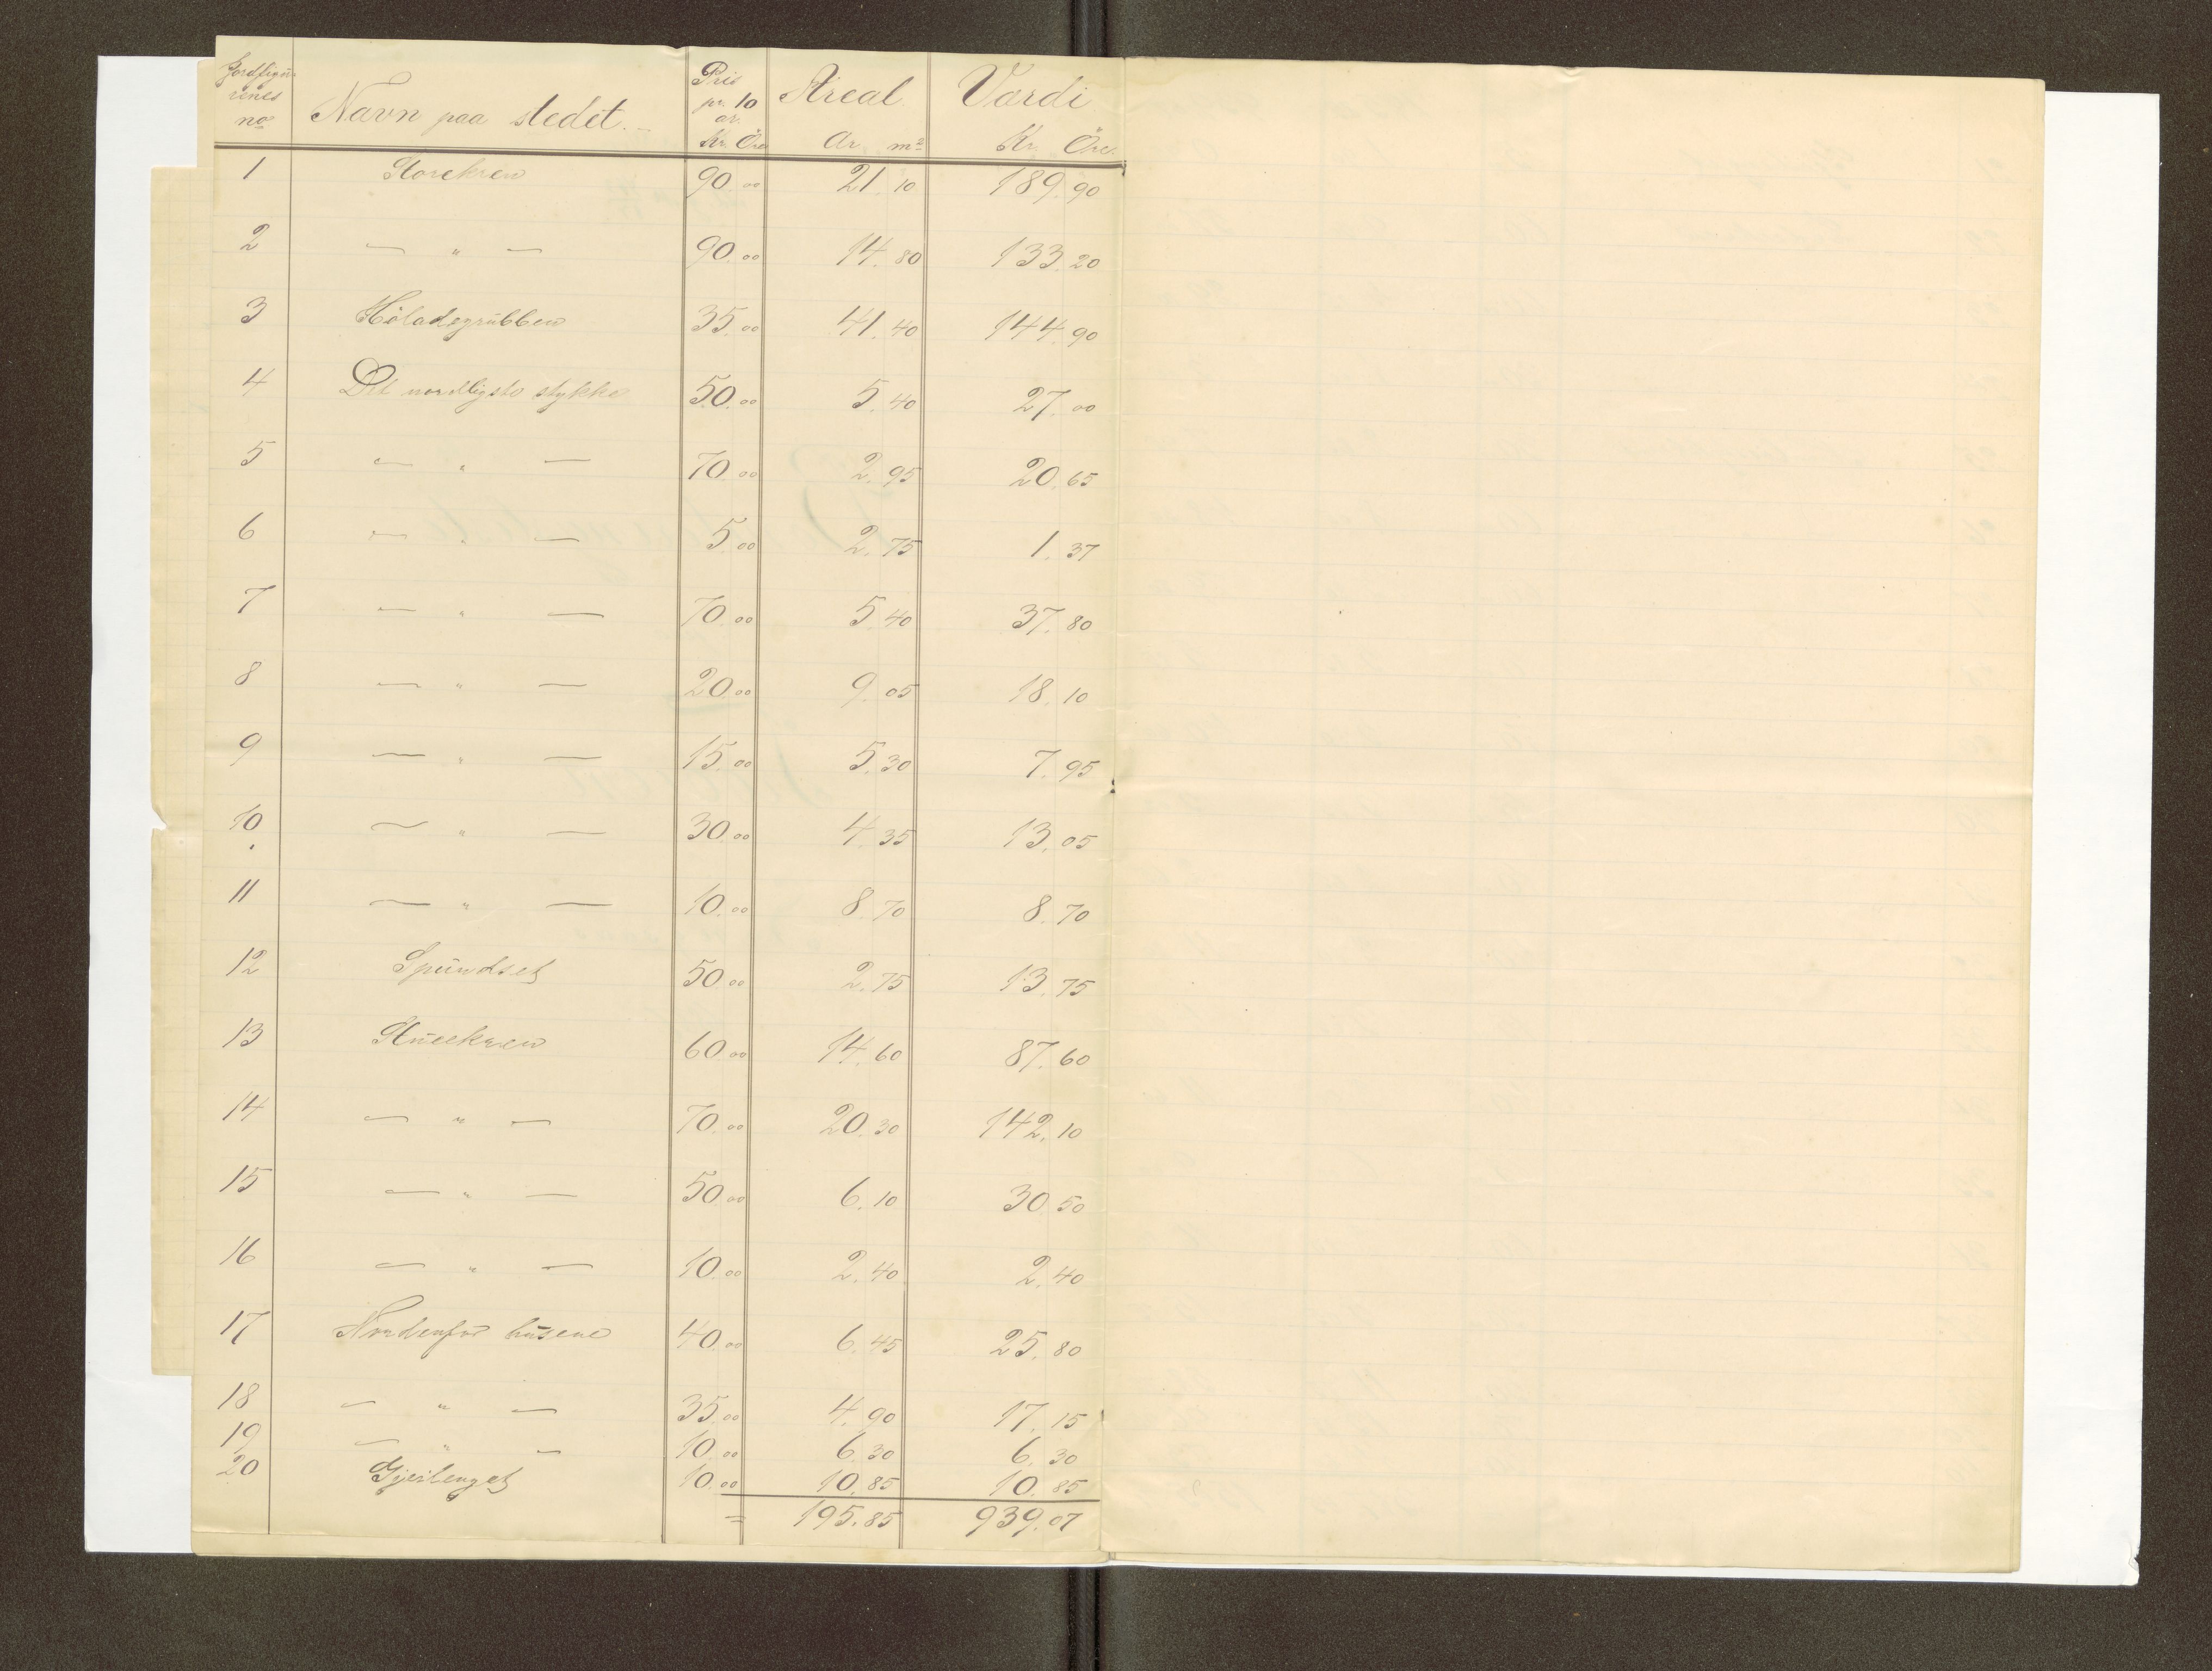 Jordfigu-
renes
no
Navn paa stedet.
Pris
pr. 10
ar.
Kr. Öre
Areal.
Ar m²
Værdi
Kr. Öre.
1 Storekren 90.00 21.10 189.90
2 — " — 90.00 14.80 133.20
3 Höladegrubben 35.00 41.40 144.90
4 Det nordligste stykke 50.00 5.40 27.00
5 — " — 70.00 2.95 20.65
6 — " — 5.00 2.75 1.37
7 — " — 70.00 5.40 37.80
8 — " — 20.00 9.05 18.10
9 — " — 15.00 5.30 7.95
10 — " — 30.00 4.35 13.05
11 — " — 10.00 8.70 8.70
12 Spundset 50.00 2.75 13.75
13 60.00 14.60 87.60
14 — " — 70.00 20.30 142.10
15 — " — 50.00 6.10 30.50
16 — " — 10.00 2.40 2.40
17 Nordenfor husene 40.00 6.45 25.80
18 — " — 35.00 4.90 17.15
19 — " — 10.00 6.30 6.30
20 10.00 10.85 10.85
= 195.85 939.07